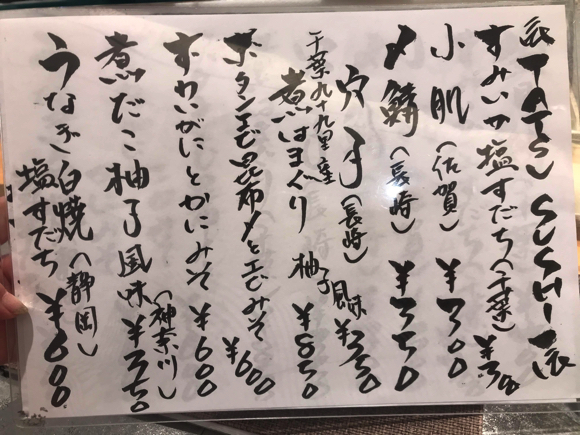 辰 TATSU SUSHI 辰
すみいか塩すだち(千葉)
小肌(佐賀)¥300
〆鯖(長崎)¥350
穴子(長崎)¥350
千葉九十九里産
煮はまぐり 柚子風味 ¥850
ボタンエビ昆布〆とエビみそ ¥600
ずわいがにとかにみそ ¥600
煮だこ柚子風味(神奈川)¥350
うなぎ白焼
塩すだち(静岡)¥600